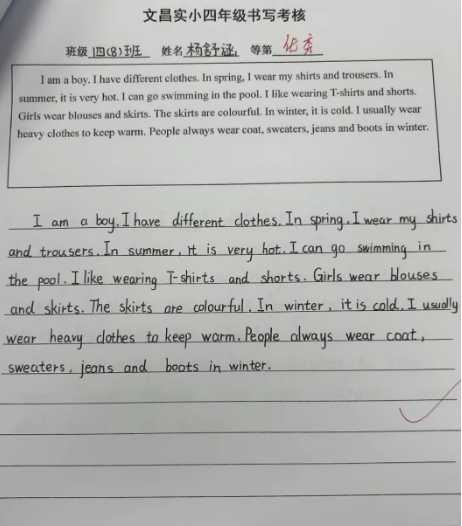 文昌实小四年级书写考核
班级 四(8)班 姓名 杨舒涵 等第 优秀
I am a boy. I have different clothes. In spring, I wear my shirts and trousers. In
summer, it is very hot. I can go swimming in the pool. I like wearing T-shirts and shorts.
Girls wear blouses and skirts. The skirts are colourful. In winter, it is cold. I usually wear
heavy clothes to keep warm. People always wear coat, sweaters, jeans and boots in winter.
I am a boy. I have different clothes. In spring, I wear my shirts
and trousers. In summer, it is very hot. I can go swimming in
the pool. I like wearing T-shirts and shorts. Girls wear blouses
and skirts. The skirts are colourful. In winter, it is cold. I usually
wear heavy clothes to keep warm. People always wear coat,
sweaters, jeans and boots in winter.